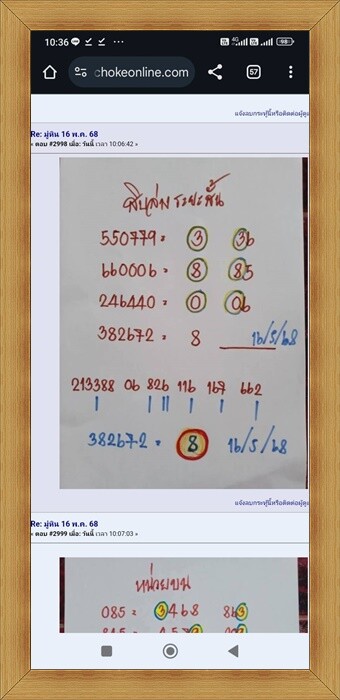 10:36
98
chokeonline.com
57
แจ้งลบกระทู้นี้หรือติดต่อผู้ดูแ
Re: มู่หิน 16 พ.ค. 68
« ตอบ #2998 เมื่อ: วันนี้ เวลา 10:06:42 »
สิบล่าง ระยะสั้น
550779 = 3 36
660006 = 8 85
246440 = 0 06
382672 = 8 16/5/68
213388 06 826 116 167 662
382672 = 8 16/5/68
แจ้งลบกระทู้นี้หรือติดต่อผู้ดูแ
Re: มู่หิน 16 พ.ค. 68
« ตอบ #2999 เมื่อ: วันนี้ เวลา 10:07:03 »
หน่วยบน
085 = 3468 863